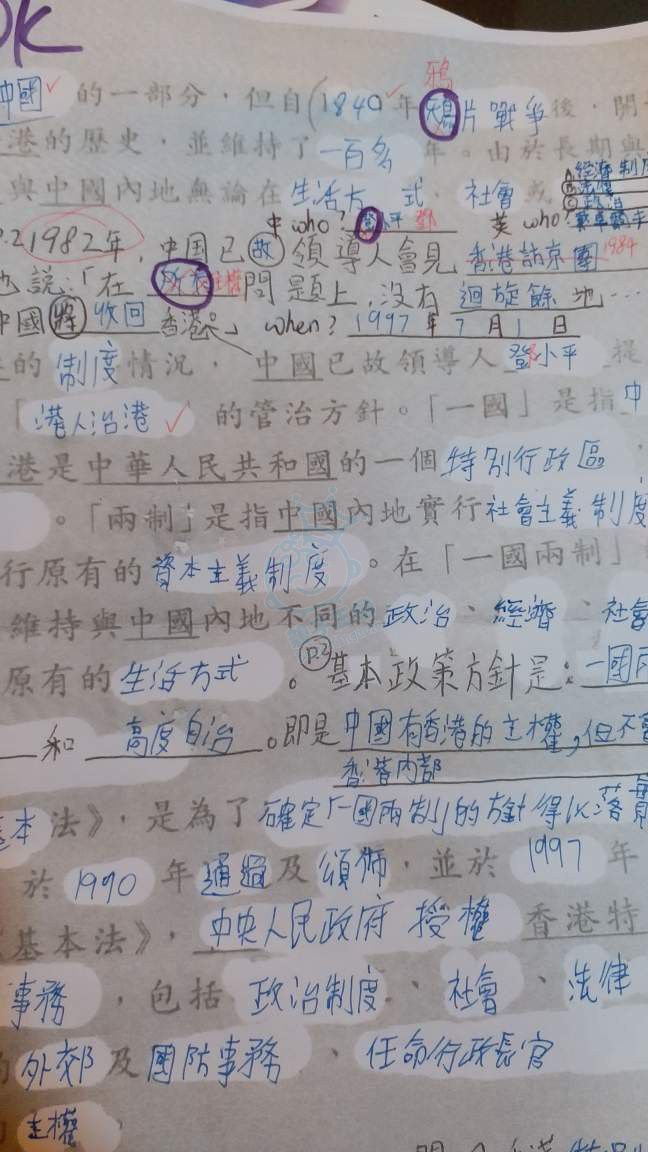 OK
中國 的一部分，但自(1840年鴉片戰爭後，開
港的歷史，並維持了一百多年。由於長期與
與中國內地無論在生活方式、社會或
經濟制度
法律
政治
中who?鄧小平 鄧 英who?
P.2 1982年，中国已故領導人會見香港訪京團 1984
也說：「在 主權問題上，沒有迴旋餘地…
中國將收回香港。」when? 1997年7月1日
的制度情況，中國已故領導人登小平提
「港人治港」的管治方針。「一國」是指中
港是中華人民共和國的一個特別行政區，
。「兩制」是指中國內地實行社會主義制度
行原有的資本主義制度。在「一國兩制」
維持與中國內地不同的政治、經濟、社會
原有的生活方式。P.2 基本政策方針是：一國兩
和 高度自治。即是中國有香港的主權，但不會
香港內部
基本法》，是為了確定「一國兩制」的方針得以落實
於1990年通過及頒佈，並於1997年
基本法》，中央人民政府授權香港特
事務，包括政治制度、社會、法律
外郊及國防事務、任命行政長官
主權